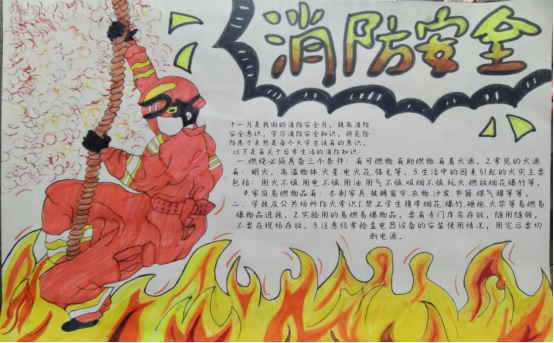 消防安全
十一月是我国的消防安全月，提高消防
安全意识，学习消防安全知识，将危险
防患于未然是每个大学生该有的意识。
以下是有关于日常生活的消防知识：
一.燃烧必须具备三个条件：有可燃物.有助燃物.有着火源。2.常见的火源
有：明火、高温物体.火星.电火花.强光等。3.生活中的因素引起的火灾主要
包括：用火不慎.用电不慎.用油.用气不慎.吸烟不慎.玩火.燃放烟花爆竹等。
二、学校及公共场所防火常识：1.禁止学生携带烟花.爆竹.砸炮.火柴等易燃易
爆物品进校、2.实验用的易燃易爆物品，要有专门库房存放，随用随领，
不要在现场存放。3.注意经常检查电器设备的安装使用情况，用完后要切
断电源。